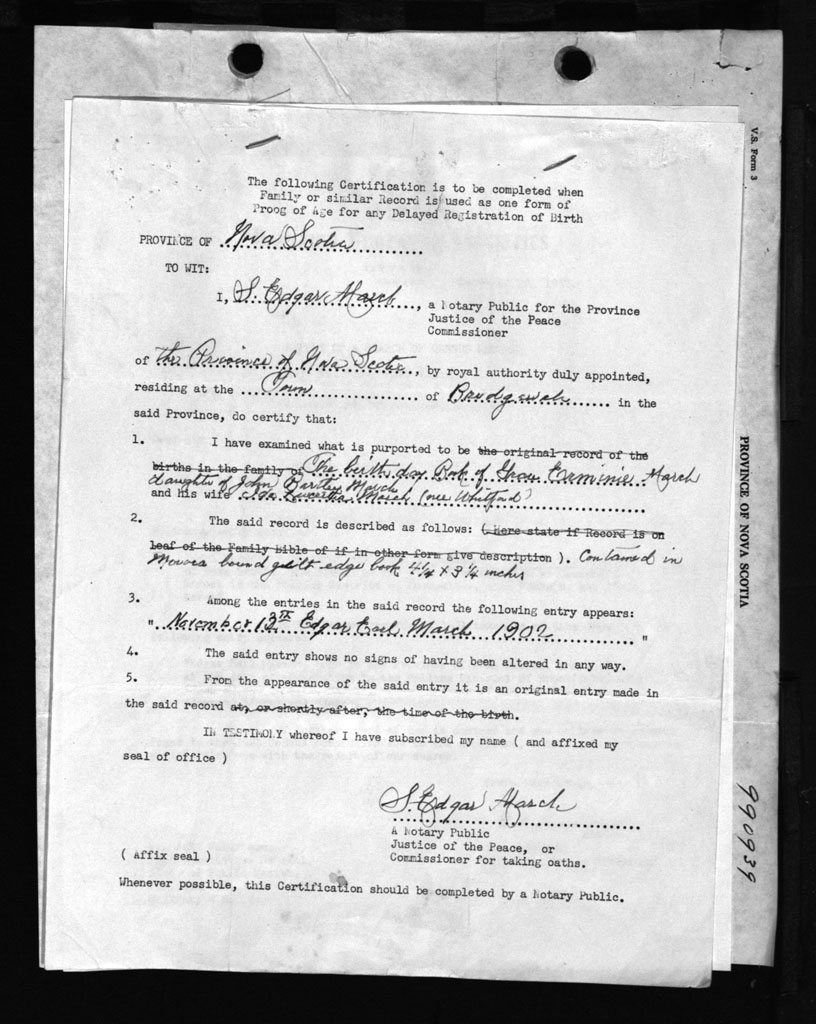 The following Certification is to be completed when
Family or similar Record is used as one form of
Proog of Age for any Delayed Registration of Birth
PROVINCE OF Nova Scotia
TO WIT:
I, S. Edgar March, a Notary Public for the Province
Justice of the Peace
Commissioner
of the Province of Nova Scotia, by royal authority duly appointed,
residing at the Town of in the
said Province, do certify that:
1. I have examined what is purported to be the original record of the
births in the family of The birth day Book of Erminie March
daughter of John March
and his wife March (nee Whitford)
2. The said record is described as follows: ( Here state if Record is on
leaf of the Family Bible of if in other form give description ). Contained in
bound guilt edge book 4 1/4 x 3 1/4 inches
3. Among the entries in the said record the following entry appears:
" November 13th Edgar Earl March 1902 "
4. The said entry shows no signs of having been altered in any way.
5. From the appearance of the said entry it is an original entry made in
the said record at, or shortly after, the time of the birth.
IN TESTIMOLY whereof I have subscribed my name ( and affixed my
seal of office )
S. Edgar March
A Notary Public
Justice of the Peace, or
Commissioner for taking oaths.
( Affix seal )
Whenever possible, this Certification should be completed by a Notary Public.
V.S. Form 3
PROVINCE OF NOVA SCOTIA
990939